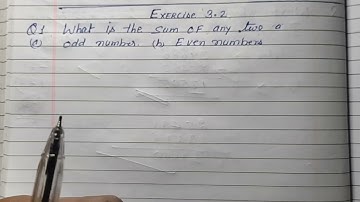 Exercise 3.2
Q1 What is the sum of any two a
(a) odd number. (b) Even numbers